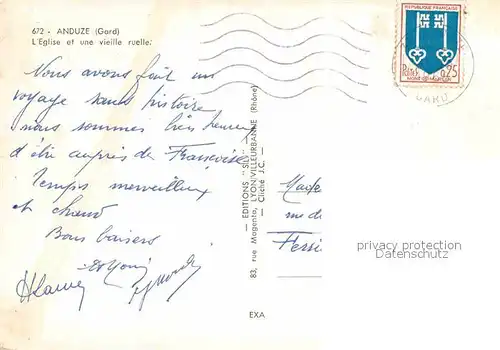 672 - ANDUZE (Gard)
L'Eglise et une vieille ruelle.
RÉPUBLIQUE FRANÇAISE
Postes 0,25
MONT-DE-MARSAN
GARD
Nous avons fait un
voyage sans histoire
nous sommes très heureux
d'être auprès de Françoise
Temps merveilleux
et chaud
Bons baisers
— EDITIONS "SLV" —
83, rue Magenta, LYON-VILLEURBANNE (Rhône)
Cliché J.C.
EXA
privacy protection
Datenschutz